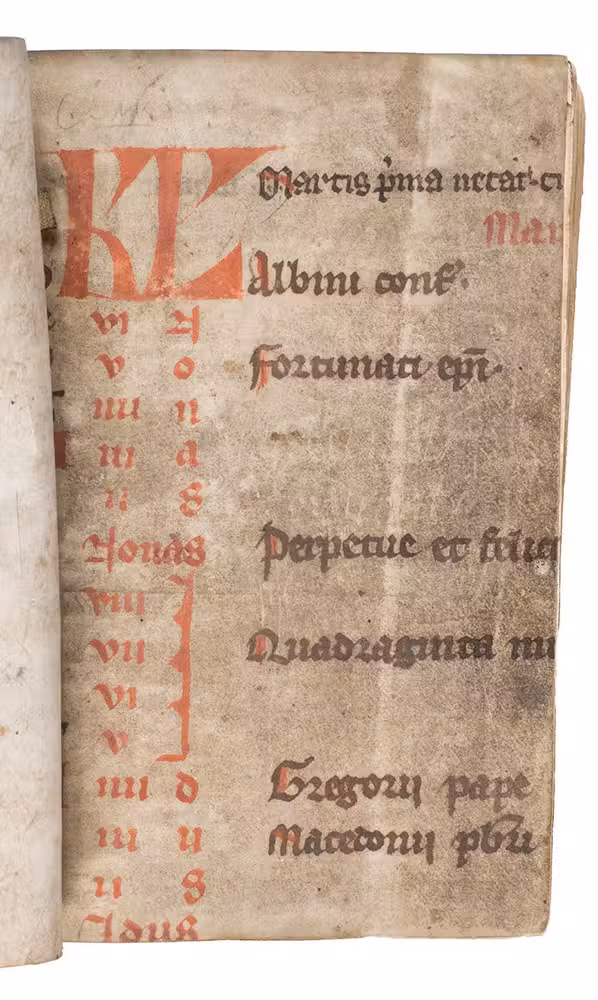 KL Martis p̄ma necat·
Mar
Albini conf̄·
vi N
v o Fortunati ep̄i·
iiii n
iii a
ii s
Nonas Perpetue et felici
viii
vii Quadraginta
vi
v
iiii d Gregorii pape
iii u Macedonii pb̄ri·
ii s
Idus